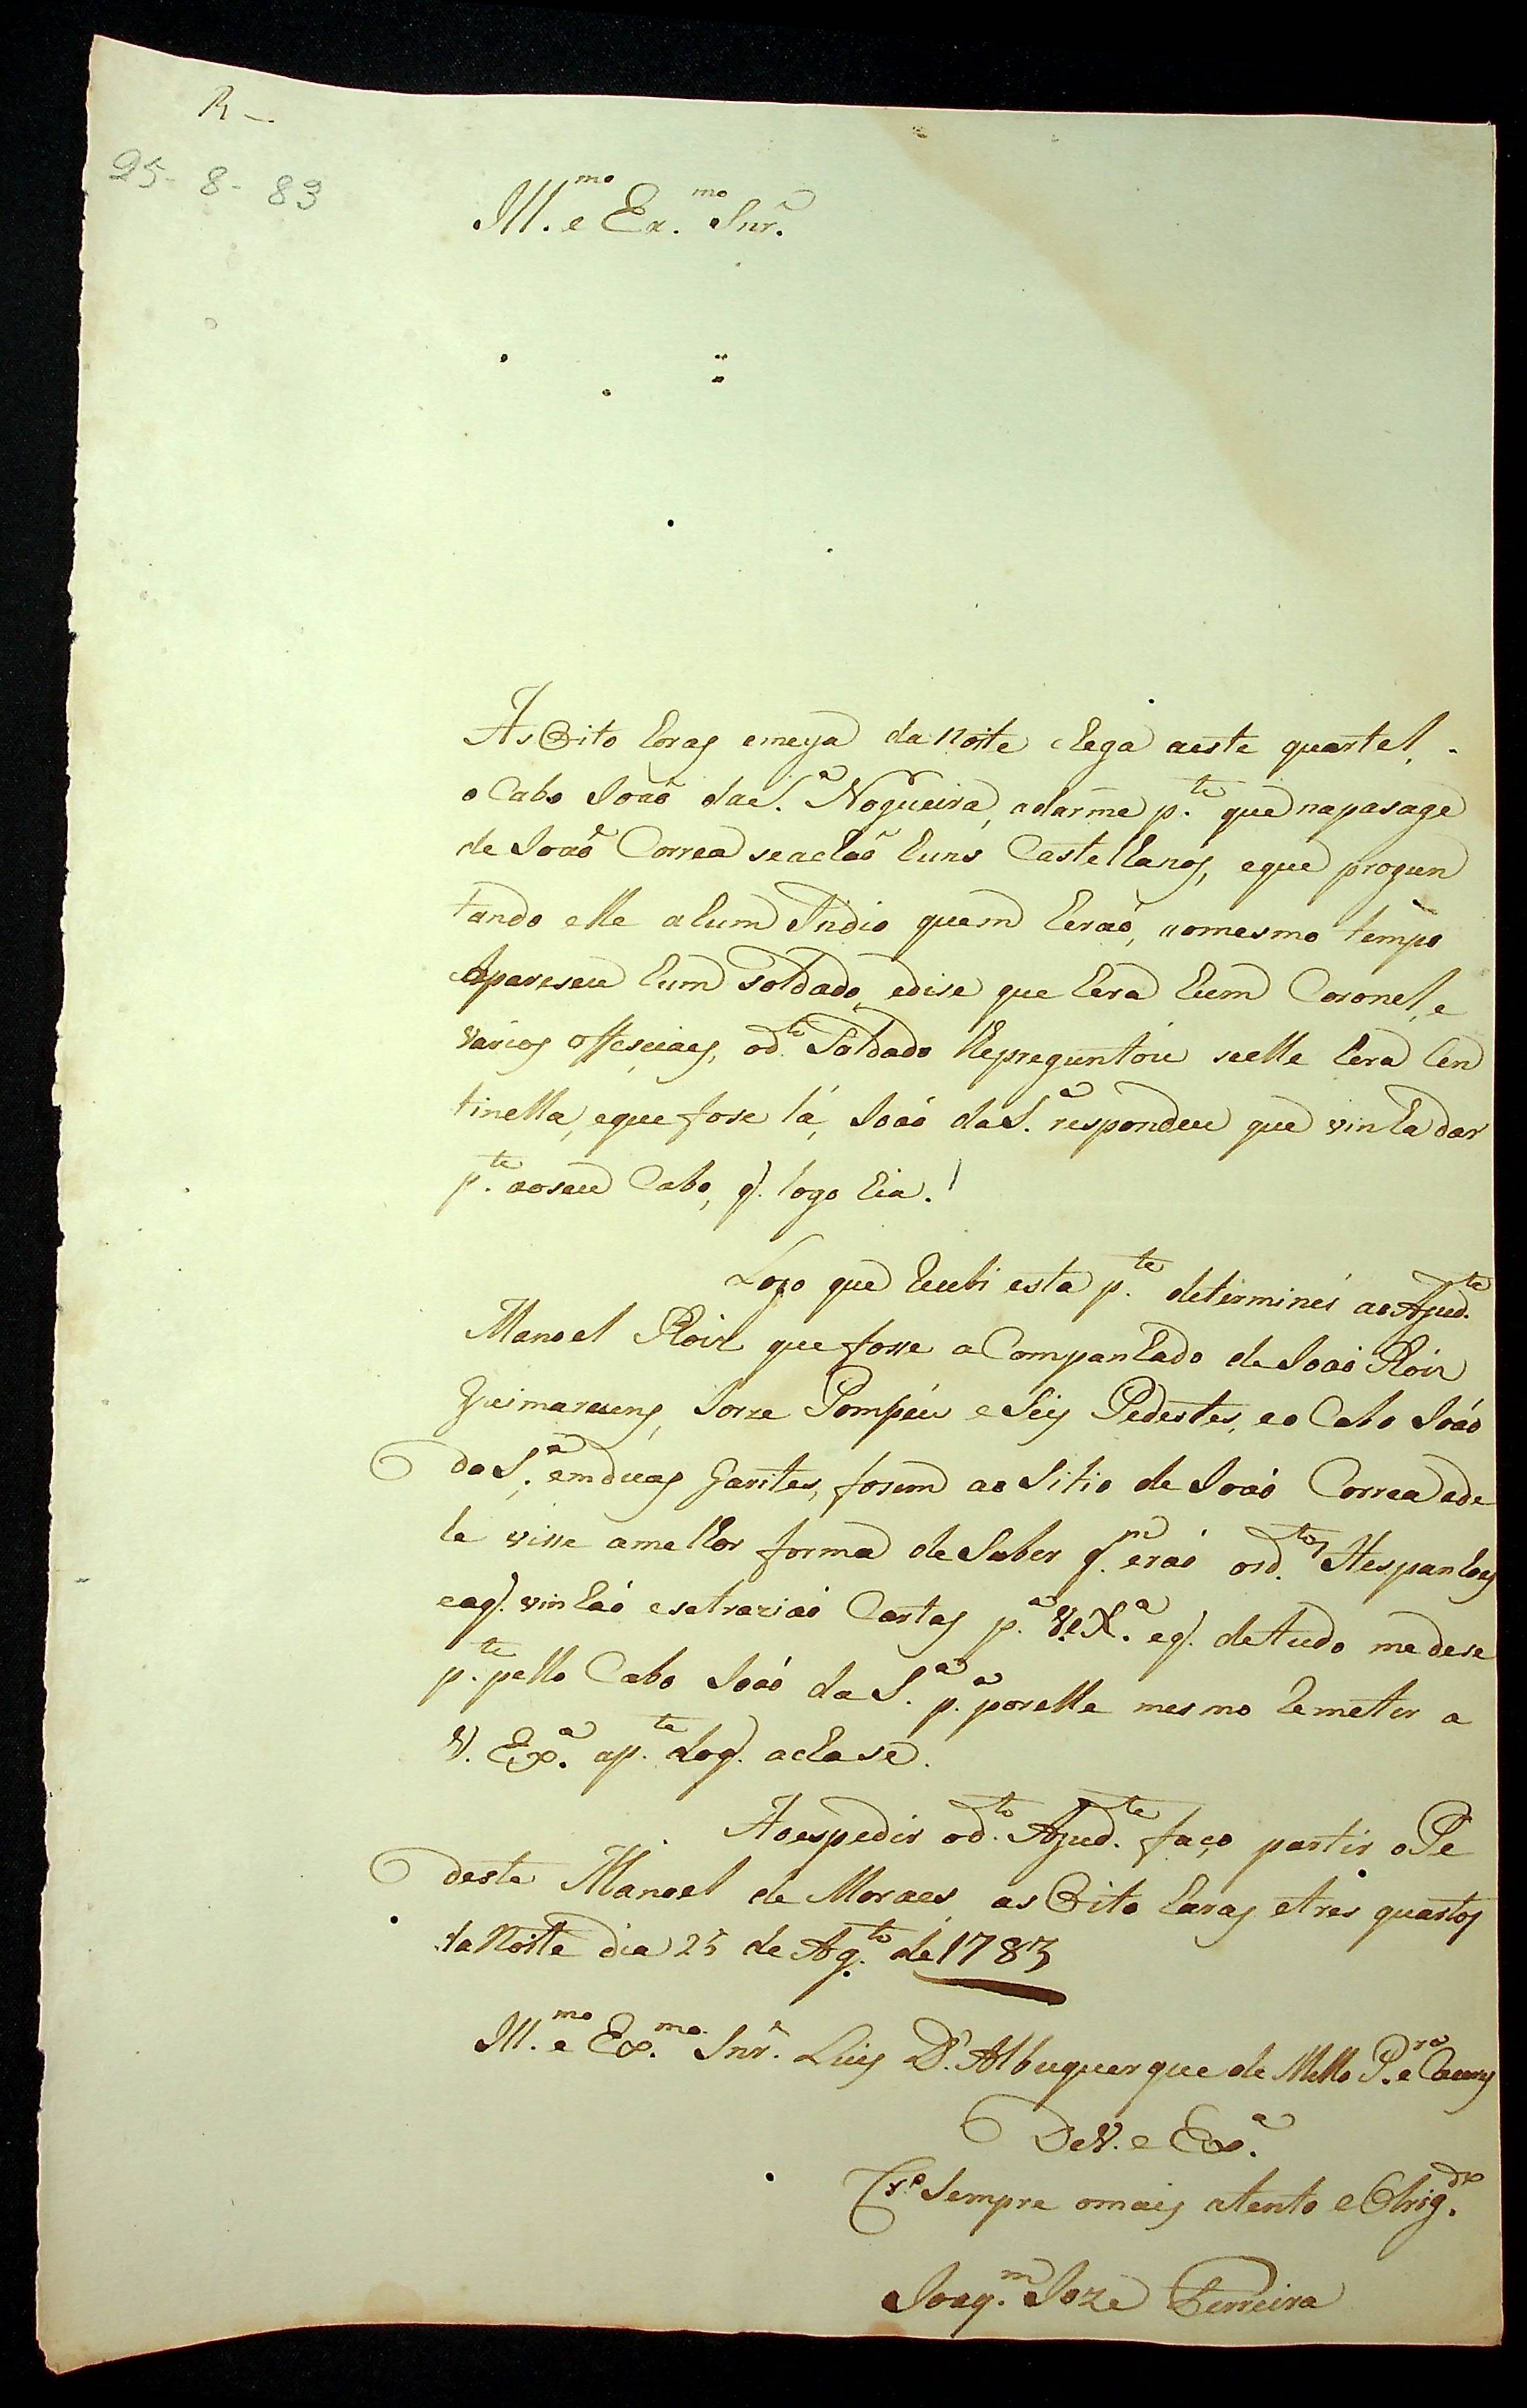 R -
25- 8- 83
Ill.mo e Ex.mo Snr.
As Oito horas emeya da Noite chega aeste quartel,
o Cabo Joaõ daS.a Nogueira, adarme p.te que napasage
de Joaõ Correa seachaõ huns Castelhanos, eque progun
tando elle ahum Indio quem heraõ, aomesmo tempo
Apareseu hum Soldado, edise que hera hum Coronel, e
varios offesciaes, od.to Soldado lhepreguntou seelle hera Cen
tinella, eque fose lá, Joaõ daS.a respondeu que vinha dar
p.te aoseu Cabo, q. logo hia.
Logo que recebi esta p.te determinei ao Ajud.te
Manoel Roiz que fosse aCompanhado de Joaõ Roiz
Guimaraens, Jorze Pompeu e Seis Pedestes, eo Cabo Joaõ
da S.a, emduas Garites, forem ao Sitio de Joaõ Correa ede
le visse amelhor forma de Saber q.m eraõ osd.tos Hespanhoes
eaq. vinhaõ esetraziaõ Cartas p.a V.eX.a eq. detudo medese
p.te pello Cabo Joaõ da S.a p.a porelle mesmo Remeter a
V. Ex.a ap.te doq. achase.
Aoespedir od.to Ajud.te faço partir oPe
deste Manoel de Moraes, as Oito horas etres quartos
da Noite dia 25 de Ag.to de 1783
Ill.mo e Ex.mo Snr. Luis D'Albuquerque de Mello P.ra e Caceres
DeV.e Ex.a
Sempre omais atento e Obrig.do
Joaq.m Joze Ferreira